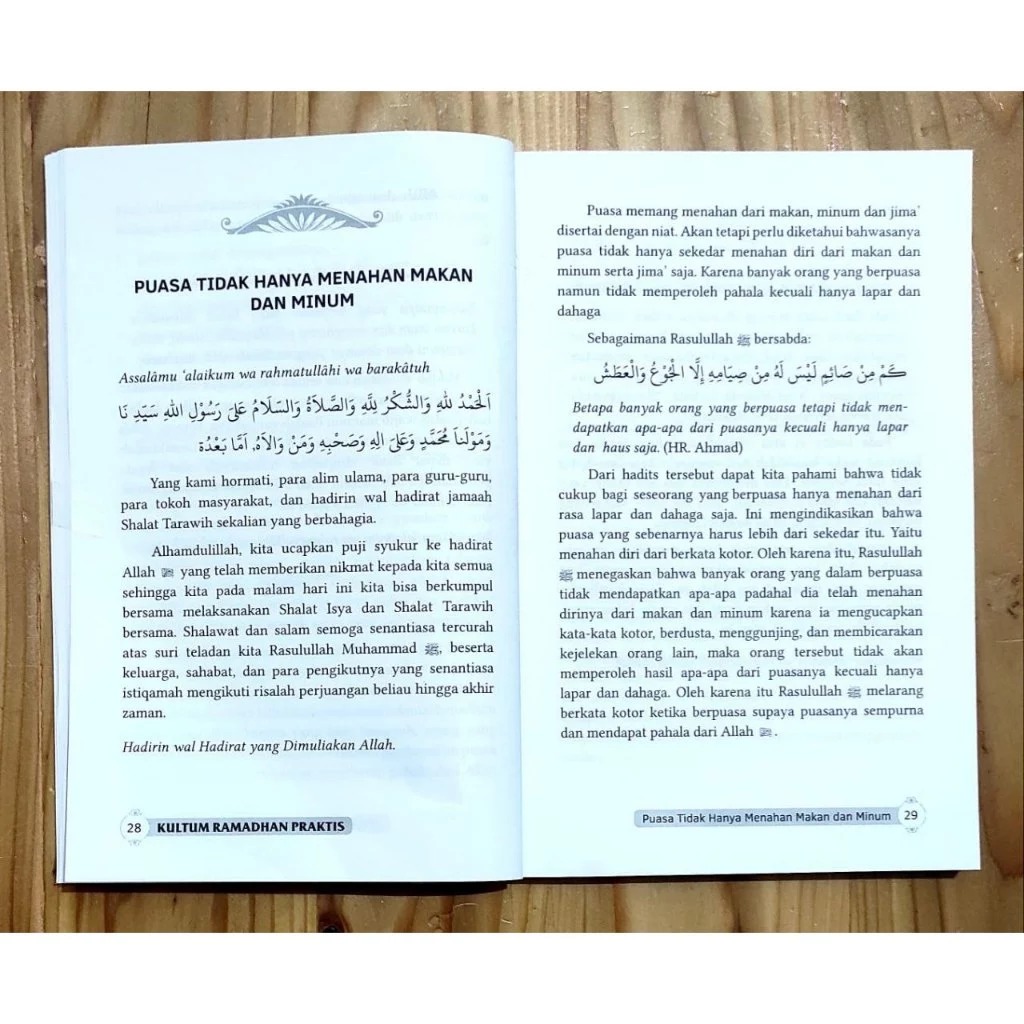 PUASA TIDAK HANYA MENAHAN MAKAN
DAN MINUM
Assalâmu ‘alaikum wa rahmatullâhi wa barakâtuh
اَلْحَمْدُ للهِ وَالشُّكْرُ لِلَّهِ وَالصَّلَاةُ وَالسَّلَامُ عَلَى رَسُوْلِ اللهِ سَيِّدِ نَا
وَمَوْلَنَا مُحَمَّدٍ وَعَلَى الِهِ وَصَحْبِهِ وَمَنْ وَالَاهُ, اَمَّا بَعْدُهُ
Yang kami hormati, para alim ulama, para guru-guru,
para tokoh masyarakat, dan hadirin wal hadirat jamaah
Shalat Tarawih sekalian yang berbahagia.
Alhamdulillah, kita ucapkan puji syukur ke hadirat
Allah ﷻ yang telah memberikan nikmat kepada kita semua
sehingga kita pada malam hari ini kita bisa berkumpul
bersama melaksanakan Shalat Isya dan Shalat Tarawih
bersama. Shalawat dan salam semoga senantiasa tercurah
atas suri teladan kita Rasulullah Muhammad ﷺ, beserta
keluarga, sahabat, dan para pengikutnya yang senantiasa
istiqamah mengikuti risalah perjuangan beliau hingga akhir
zaman.
Hadirin wal Hadirat yang Dimuliakan Allah.
28 KULTUM RAMADHAN PRAKTIS
Puasa memang menahan dari makan, minum dan jima’
disertai dengan niat. Akan tetapi perlu diketahui bahwasanya
puasa tidak hanya sekedar menahan diri dari makan dan
minum serta jima’ saja. Karena banyak orang yang berpuasa
namun tidak memperoleh pahala kecuali hanya lapar dan
dahaga
Sebagaimana Rasulullah ﷺ bersabda:
كَمْ مِنْ صَائِمٍ لَيْسَ لَهُ مِنْ صِيَامِهِ إِلَّا الْجُوْعُ وَالْعَطَشُ
Betapa banyak orang yang berpuasa tetapi tidak men-
dapatkan apa-apa dari puasanya kecuali hanya lapar
dan haus saja. (HR. Ahmad)
Dari hadits tersebut dapat kita pahami bahwa tidak
cukup bagi seseorang yang berpuasa hanya menahan dari
rasa lapar dan dahaga saja. Ini mengindikasikan bahwa
puasa yang sebenarnya harus lebih dari sekedar itu. Yaitu
menahan diri dari berkata kotor. Oleh karena itu, Rasulullah
ﷺ menegaskan bahwa banyak orang yang dalam berpuasa
tidak mendapatkan apa-apa padahal dia telah menahan
dirinya dari makan dan minum karena ia mengucapkan
kata-kata kotor, berdusta, menggunjing, dan membicarakan
kejelekan orang lain, maka orang tersebut tidak akan
memperoleh hasil apa-apa dari puasanya kecuali hanya
lapar dan dahaga. Oleh karena itu Rasulullah ﷺ melarang
berkata kotor ketika berpuasa supaya puasanya sempurna
dan mendapat pahala dari Allah ﷻ.
Puasa Tidak Hanya Menahan Makan dan Minum 29